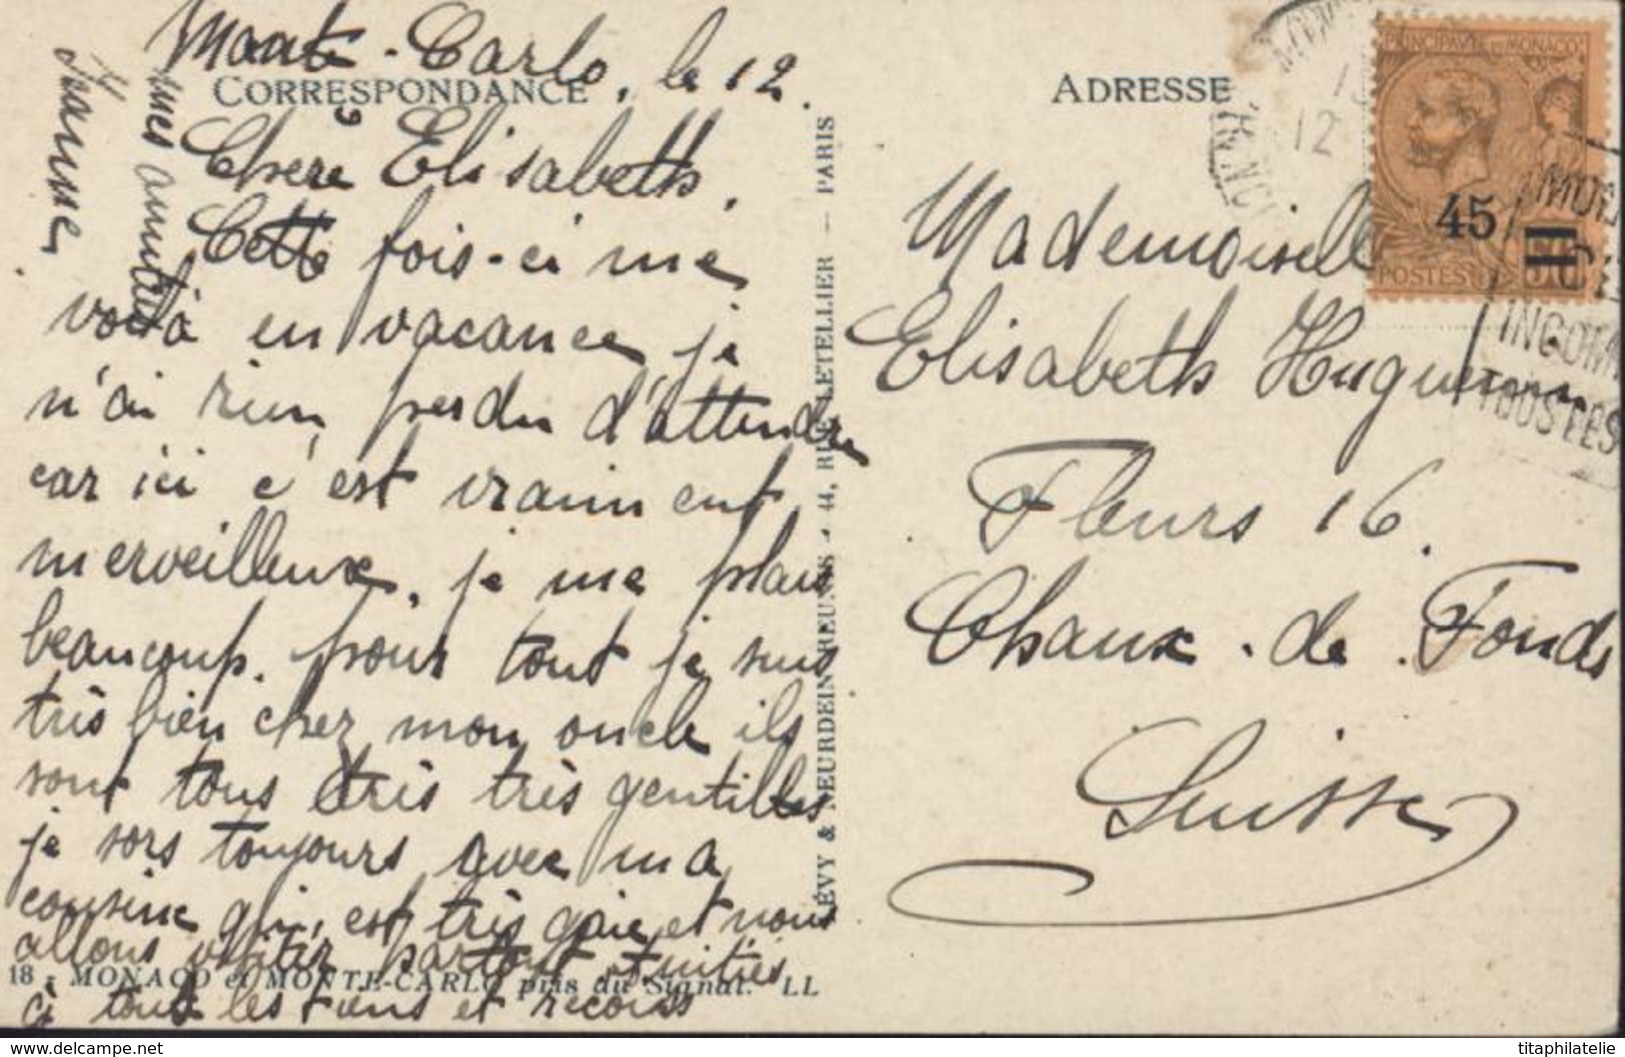 Monte-Carlo, le 12.
CORRESPONDANCE
Chère Elisabeth,
Cette fois-ci me
voilà en vacance je
n'ai rien perdu d'attendre
car ici c'est vraiment
merveilleux, je me plais
beaucoup. pour tout je suis
très bien chez mon oncle ils
sont tous très très gentilles
je sors toujours avec ma
cousine qui est très gaie et nous
allons visiter partout
à tous les tiens et recois
mes amitiés
18 - MONACO et MONTE-CARLO pris du Signal. LL
LÉVY & NEURDEIN RÉUNIS - 44, RUE LETELLIER - PARIS
ADRESSE
PRINCIPAUTÉ DE MONACO
45
POSTES
12
INCOM
TOUS LES
Mademoiselle
Elisabeth Huguenin
Fleurs 16.
Chaux-de-Fonds
Suisse
https://www.delcampe.net
titaphilatelie